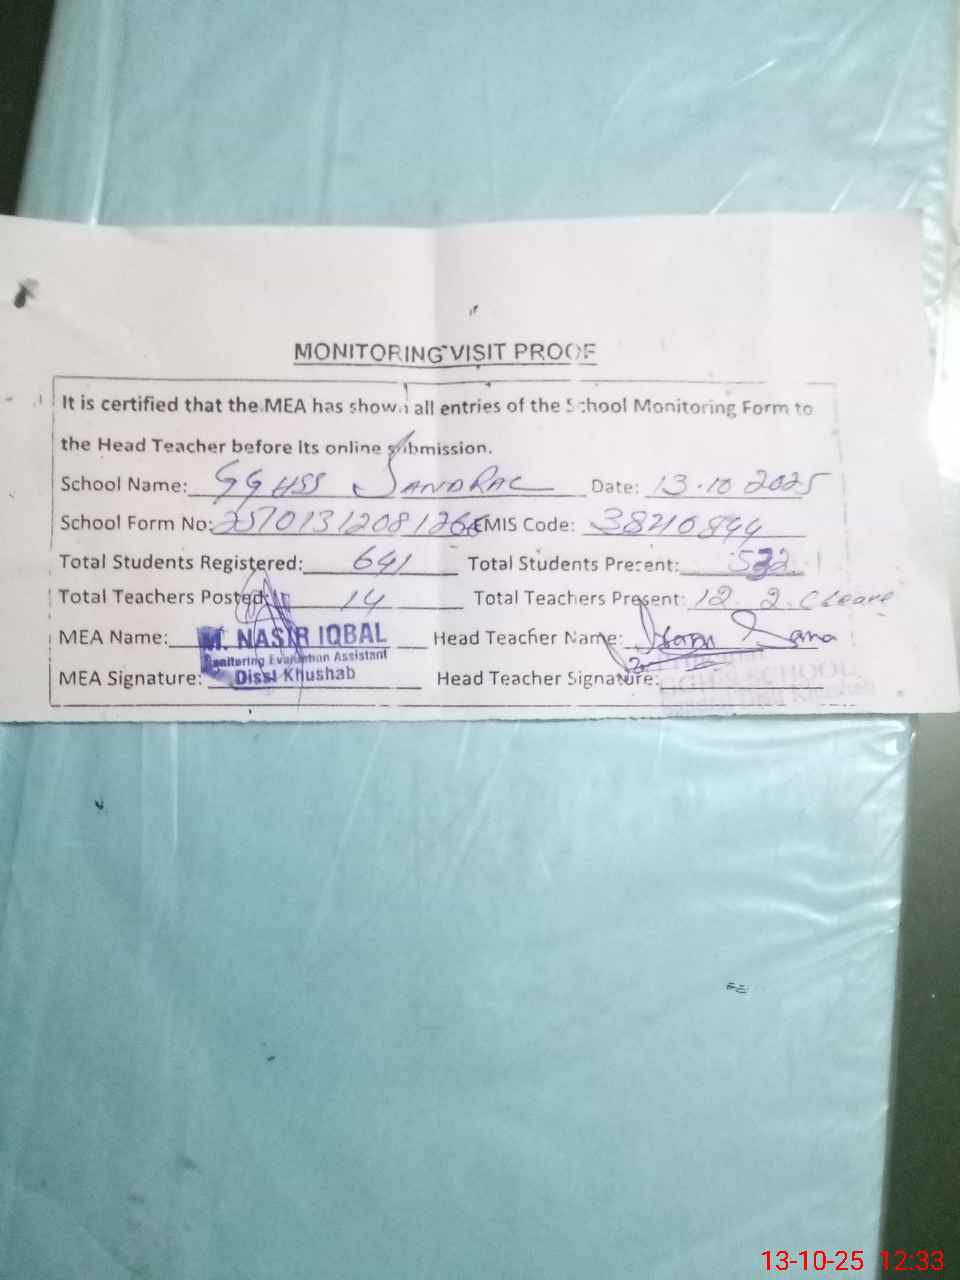 MONITORING VISIT PROOF
It is certified that the MEA has shown all entries of the School Monitoring Form to
the Head Teacher before its online submission.
School Name: GGHSS SANDRAL Date: 13.10.2025
School Form No: EMIS Code: 38210844
Total Students Registered: 641 Total Students Present: 532
Total Teachers Posted: 14 Total Teachers Present: 12. 2. C Leave
MEA Name: M. NASIR IQBAL Head Teacher Name:
Monitoring Evaluation Assistant
MEA Signature: Distt Khushab Head Teacher Signature:
SCHOOL
Distt Khushab
13-10-25 12:33